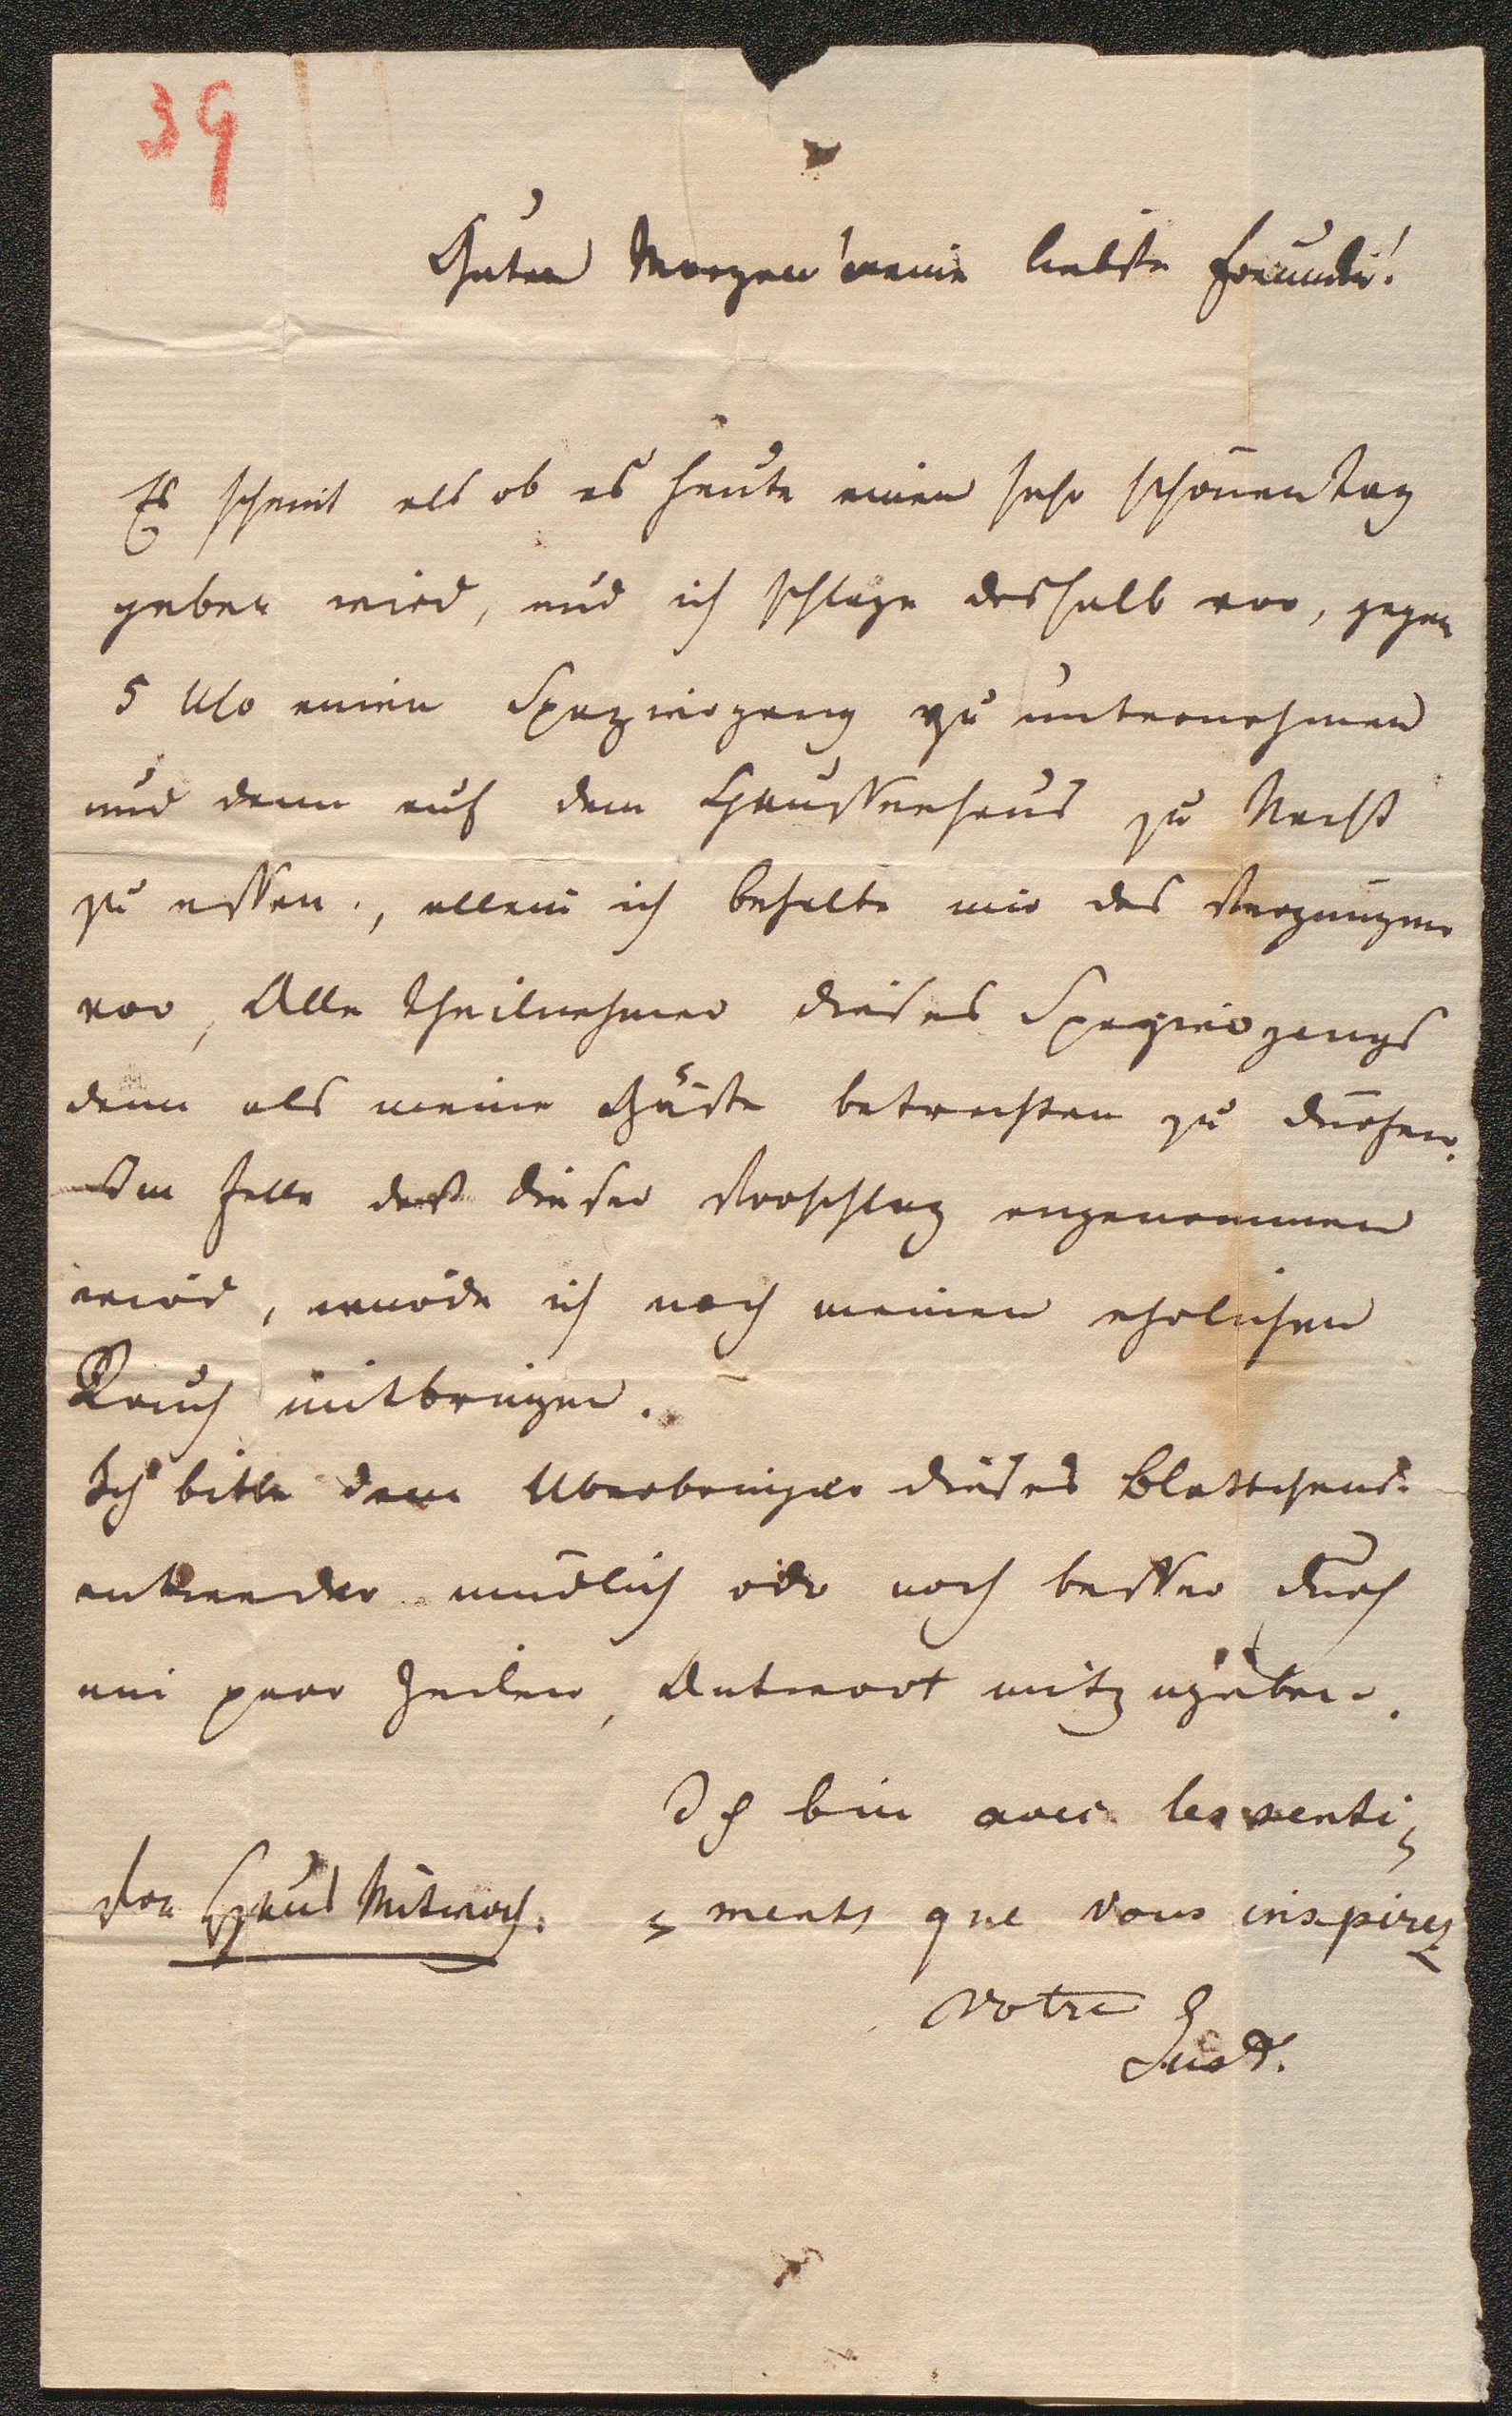 39
Guten Morgen! meine liebste Freundin!
Es scheint als ob es heute einen sehr schönen Tag
geben wird, und ich schlage deshalb vor, gegen
5 Uhr einen Spaziergang zu unternehmen
und dann auf dem Chausseehaus zu Nacht
zu essen., allein ich behalte mir das Vergnügen
vor, Alle Theilnehmer dieses Spaziergangs
dann als meine Gäste betrachten zu dürfen.
Im Falle daß dieser Vorschlag angenommen
wird, würde ich noch meinen ehrlichen
Rauch mitbringen.
Ich bitte dem Uberbringer dieses Blattchens
entweder mündlich oder noch besser durch
ein paar Zeilen, Antwort mitzugeben.
Ich bin avec les senti-
Von Haus Mitwoch. -ments que vous inspirez
votre